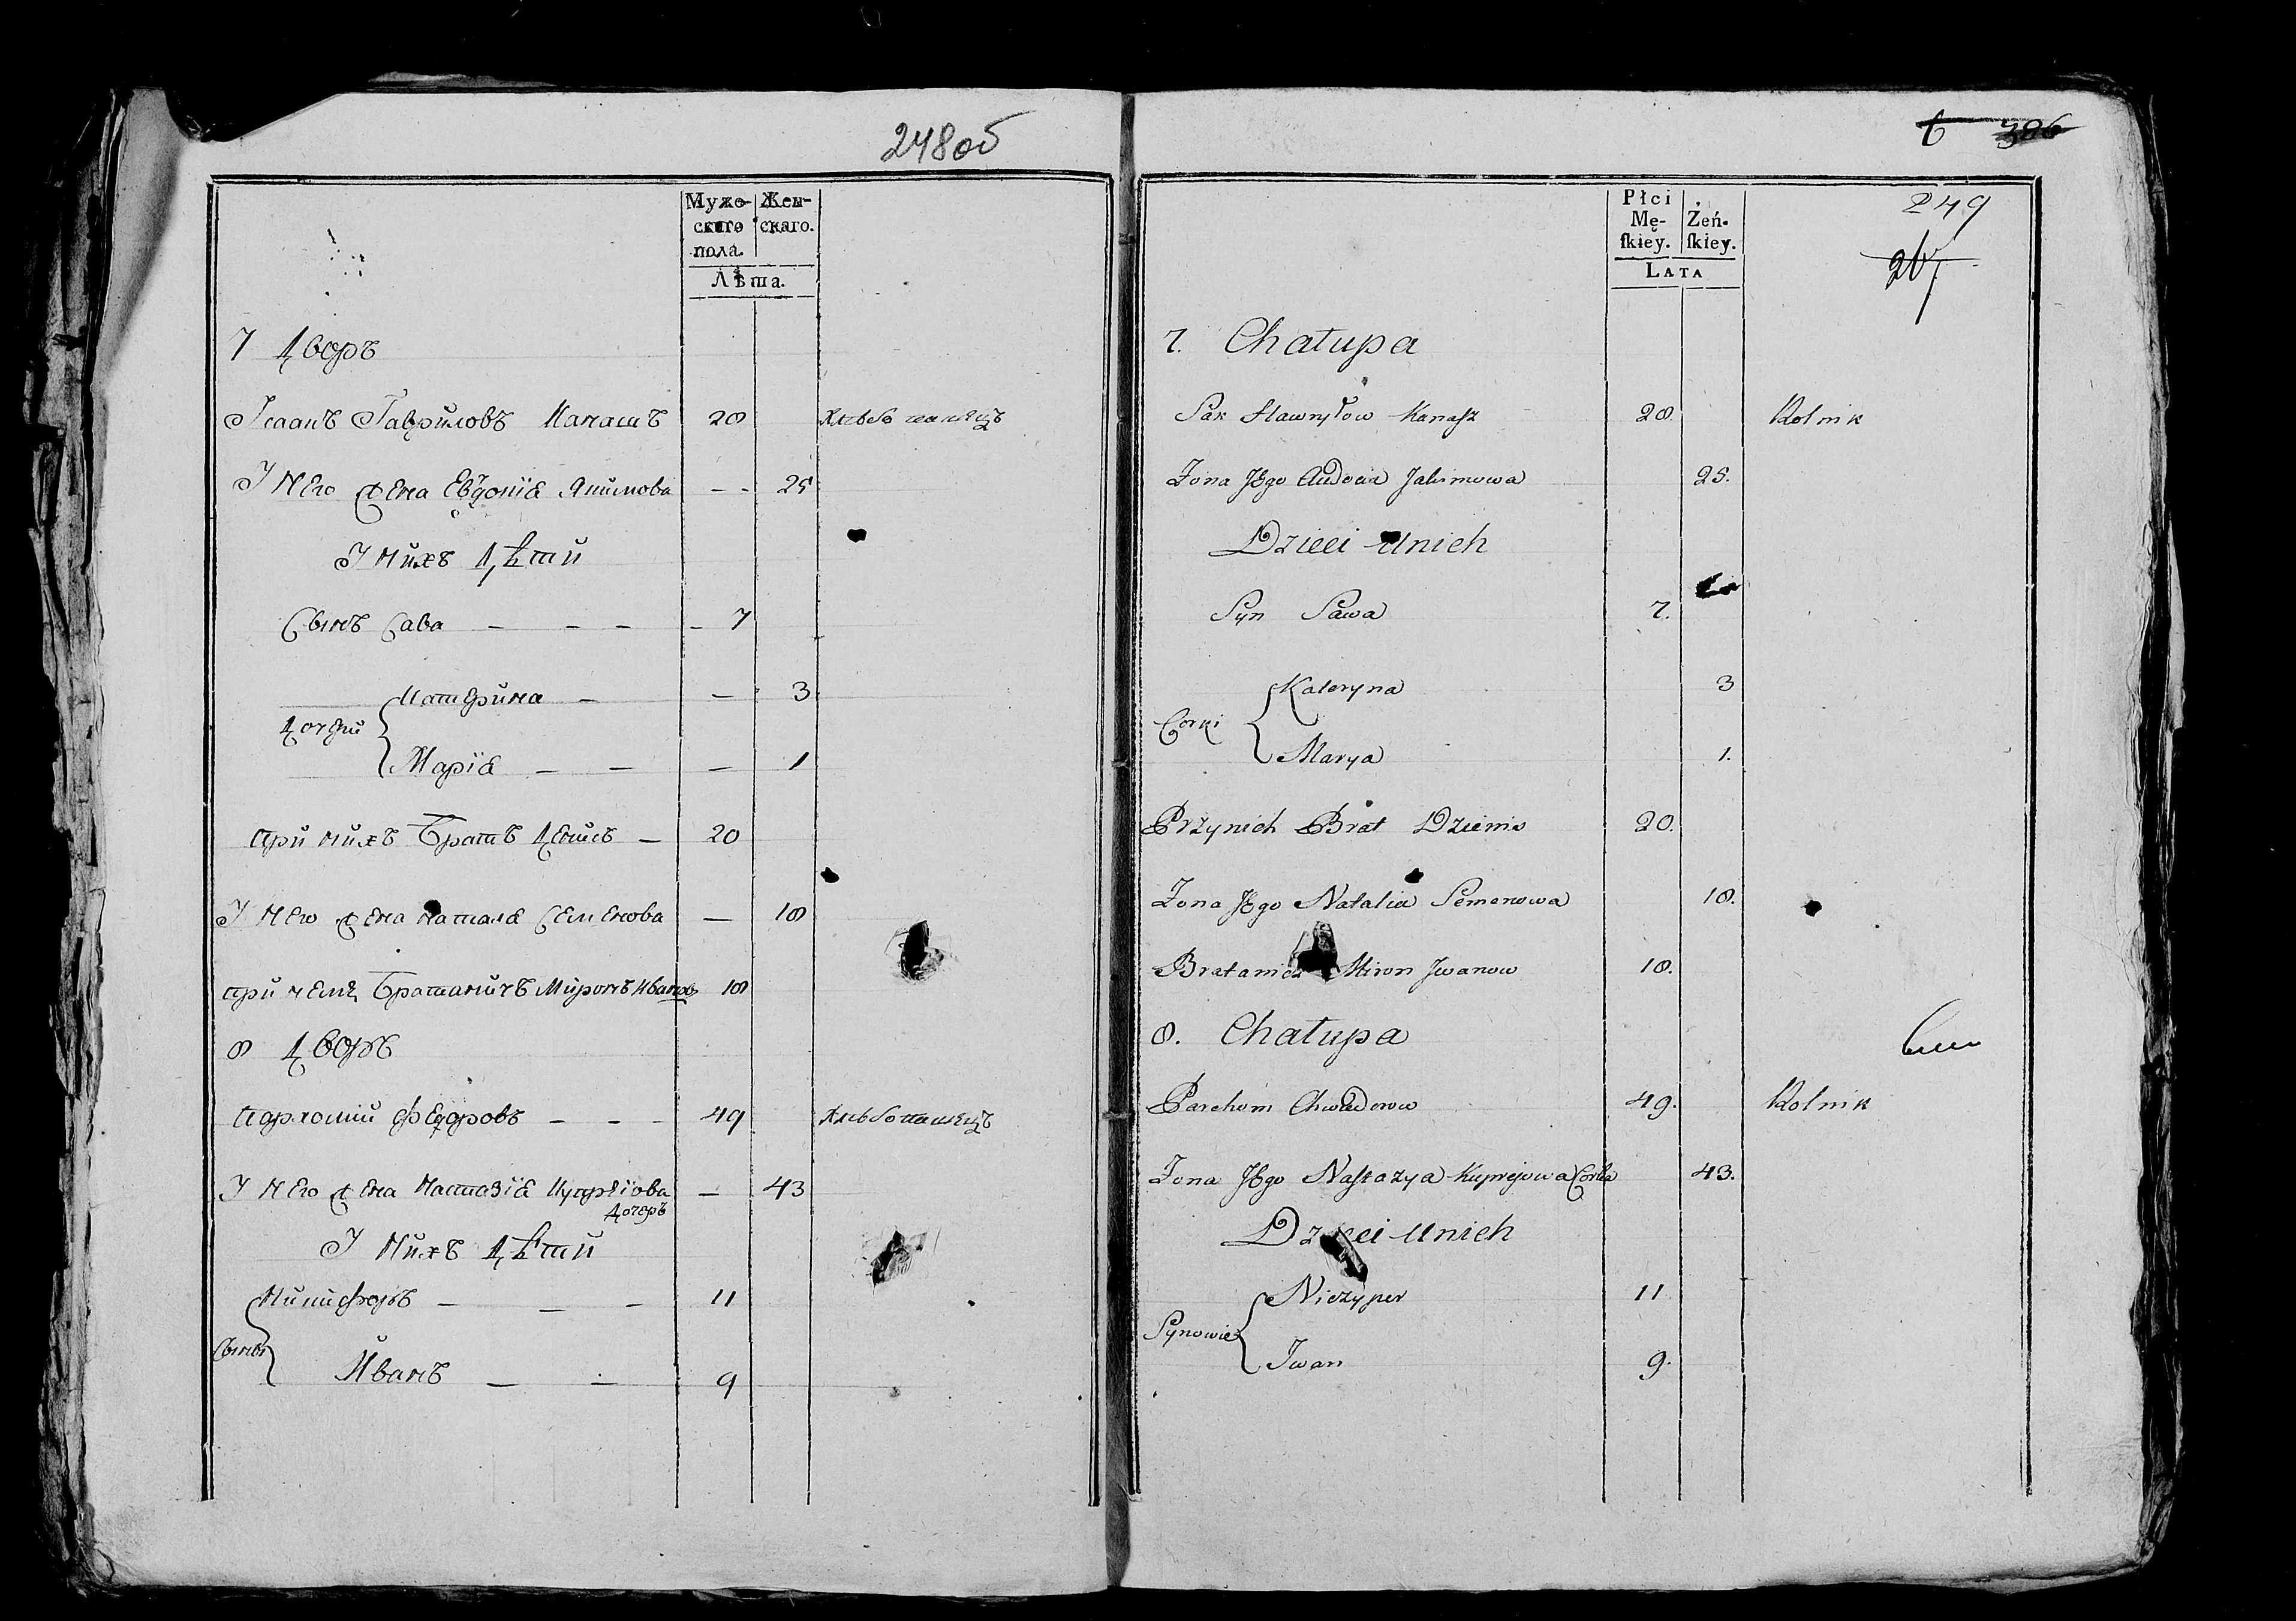 248об
Мужескаго пола. Женскаго.
Лѣта.
7 Дворъ
Ісаакъ Гавриловъ Канашъ 28 Хлѣбопашецъ
У него жена Евдокія Якимова — - 25
У нихъ Дѣти
Сынъ Сава — - - - 7
Дочери
Катерина — — 3
Марія — — — 1
при нихъ Братъ Денисъ — 20
У него жена наталя Семенова — 18
при немъ Братаничъ Миронъ Иванов 18
8 Дворъ
Пархомій Федоровъ — - - 49 Хлѣбопашецъ
У него жена Настазія Купріова дочеръ — 43
У нихъ Дѣти
Сыны
Никифоръ — — - 11
Иванъ — - 9
6 306
249
Płci Męſkiey. Żeńſkiey.
LATA
7. Chałupa
Sak Hawryłow Kanasz 28. Rolnik
Zona Jego Audocia Jakimowa 25.
Dzieci u nich
Syn Sawa 7.
Corki
Kateryna 3
Marya 1.
Przy nich Brat Dzienis 20.
Zona Jego Natalia Semenowa 18.
Bratanicz Miron Jwanow 18.
8. Chałupa
Parchom Chwedorow 49. Rolnik
Zona Jego Nastazya Kuprejowa Corka 43.
Dzieci u nich
Synowie
Niczyper 11
Jwan 9.